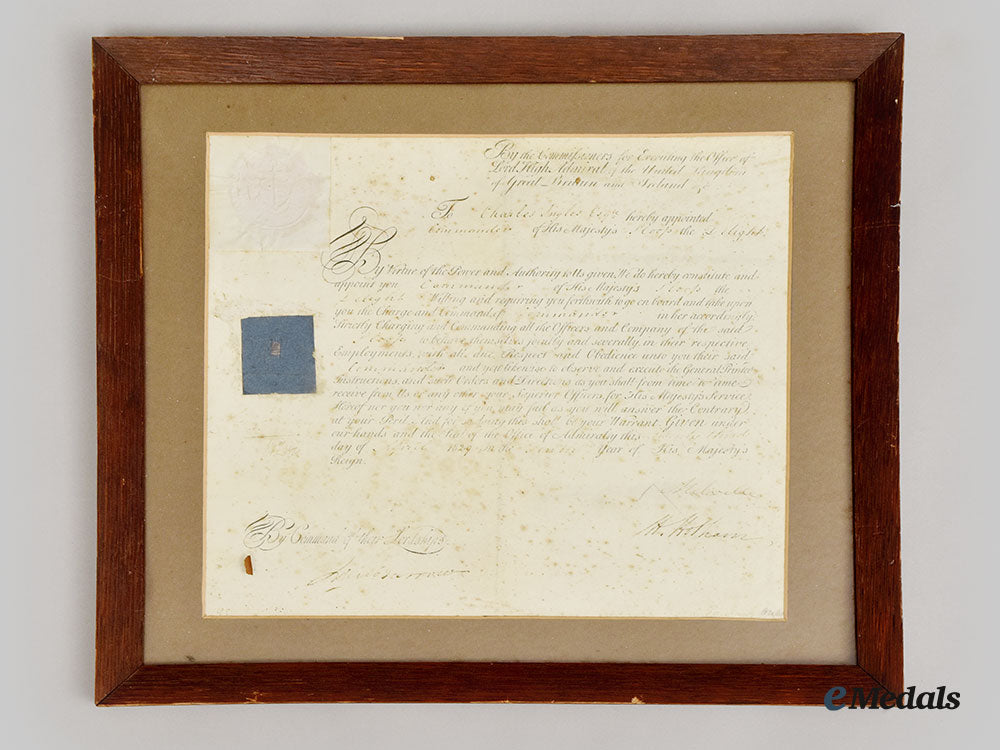 By the Commissioners for Executing the Office of
Lord High Admiral of the United Kingdom
of Great Britain and Ireland &c
To Charles Inglis Esqr. hereby appointed
Commander of His Majesty's Sloop the Delight.
By Virtue of the Power and Authority to Us given, We do hereby constitute and
appoint you Commander of His Majesty's Sloop the
Delight Willing and requiring you forthwith to go on board and take upon
you the Charge and Command of Commander in her accordingly;
Strictly Charging and Commanding all the Officers and Company of the said
Sloop to behave themselves jointly and severally in their respective
Employments, with all due Respect and Obedience unto you their said
Commander and you likewise to Observe and execute the General Printed
Instructions, and such Orders and Directions as you shall from time to time
receive from Us or any other your Superior Officers for His Majesty's Service;
Hereof nor you nor any of you may fail as you will answer the Contrary
at your Peril. And for so doing this shall be your Warrant Given under
our hands and the Seal of the Office of Admiralty this
day of April 1829 in the year of His Majesty's
Reign.
Melville
H. Hotham
By Command of their Lordships.
Jn Barrow
eMedals